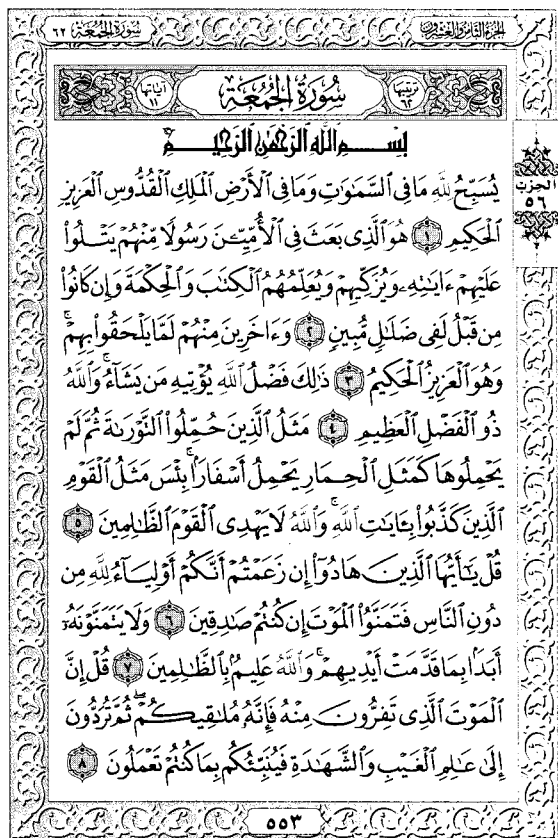 سُورَةُ الجُمُعَةِ ٦٢
الجُزْءُ الثَّامِنُ وَالعِشْرُونَ
ترتيبها ٦٢
سُورَةُ الجُمُعَةِ
آياتها ١١
بِسْمِ ٱللَّهِ ٱلرَّحْمَٰنِ ٱلرَّحِيمِ
يُسَبِّحُ لِلَّهِ مَا فِي ٱلسَّمَٰوَٰتِ وَمَا فِي ٱلْأَرْضِ ٱلْمَلِكِ ٱلْقُدُّوسِ ٱلْعَزِيزِ
ٱلْحَكِيمِ ١ هُوَ ٱلَّذِي بَعَثَ فِي ٱلْأُمِّيِّـۧنَ رَسُولًا مِّنْهُمْ يَتْلُوا۟
عَلَيْهِمْ ءَايَٰتِهِۦ وَيُزَكِّيهِمْ وَيُعَلِّمُهُمُ ٱلْكِتَٰبَ وَٱلْحِكْمَةَ وَإِن كَانُوا۟
مِن قَبْلُ لَفِي ضَلَٰلٍ مُّبِينٍ ٢ وَءَاخَرِينَ مِنْهُمْ لَمَّا يَلْحَقُوا۟ بِهِمْ ۚ
وَهُوَ ٱلْعَزِيزُ ٱلْحَكِيمُ ٣ ذَٰلِكَ فَضْلُ ٱللَّهِ يُؤْتِيهِ مَن يَشَآءُ ۚ وَٱللَّهُ
ذُو ٱلْفَضْلِ ٱلْعَظِيمِ ٤ مَثَلُ ٱلَّذِينَ حُمِّلُوا۟ ٱلتَّوْرَىٰةَ ثُمَّ لَمْ
يَحْمِلُوهَا كَمَثَلِ ٱلْحِمَارِ يَحْمِلُ أَسْفَارًۢا ۚ بِئْسَ مَثَلُ ٱلْقَوْمِ
ٱلَّذِينَ كَذَّبُوا۟ بِـَٔايَٰتِ ٱللَّهِ ۚ وَٱللَّهُ لَا يَهْدِي ٱلْقَوْمَ ٱلظَّٰلِمِينَ ٥
قُلْ يَٰٓأَيُّهَا ٱلَّذِينَ هَادُوٓا۟ إِن زَعَمْتُمْ أَنَّكُمْ أَوْلِيَآءُ لِلَّهِ مِن
دُونِ ٱلنَّاسِ فَتَمَنَّوُا۟ ٱلْمَوْتَ إِن كُنتُمْ صَٰدِقِينَ ٦ وَلَا يَتَمَنَّوْنَهُۥٓ
أَبَدًۢا بِمَا قَدَّمَتْ أَيْدِيهِمْ ۚ وَٱللَّهُ عَلِيمٌۢ بِٱلظَّٰلِمِينَ ٧ قُلْ إِنَّ
ٱلْمَوْتَ ٱلَّذِي تَفِرُّونَ مِنْهُ فَإِنَّهُۥ مُلَٰقِيكُمْ ۖ ثُمَّ تُرَدُّونَ
إِلَىٰ عَٰلِمِ ٱلْغَيْبِ وَٱلشَّهَٰدَةِ فَيُنَبِّئُكُم بِمَا كُنتُمْ تَعْمَلُونَ ٨
الحزب
٥٦
٥٥٣